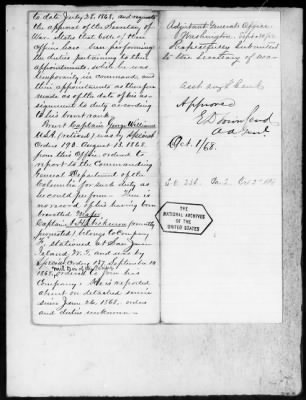 to date July 28. 1868, and requests
the approval of the Secretary of
War. State that both of these
Officers have been performing
the duties pertaining to their
appointments, while he was
temporarily in command, and
their appointments as therefore
made as of the date of his as-
signment to duty according
to his brevet rank.
Brevet Captain George Williams
U.S.A. (retired), was by Special
Orders 193. August 13. 1868.
from this Office, ordered to
report to the Commanding
General Department of the
Columbia for such duty as
he could perform. There is
no record of his having been
brevetted Major.
Captain
promoted) belongs to Company
F, stationed at San Juan
Island, W. T. and was by
Special Orders 187 September 14
1868, ordered to join his
Company. He is reported
absent on detached service
since June 26. 1868. orders
and duties unknown.
Adjutant General's Office
Washington, Sept 30/68
Respectfully submitted
to the Secretary of War
Asst Adjt Genl
Approved
E D Townsend
Oct. 1/68.
THE
NATIONAL ARCHIVES
OF THE
UNITED STATES